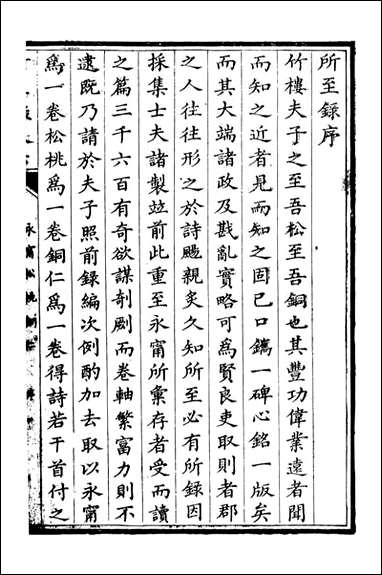 所至錄序
竹樓夫子之至吾松至吾銅也其豐功偉業遠者聞
而知之近者見而知之固已口鐫一碑心銘一版矣
而其大端諸政及戡亂實略可為賢良吏取則者郡
之人往往形之於詩颺親炙久知所至必有所錄因
採集士夫諸製並前此重至永甯所彙存者受而讀
之篇三千六百有奇欲謀剞劂而卷軸繁富力則不
逮既乃請於夫子照前錄編次例酌加去取以永甯
為一卷松桃為一卷銅仁為一卷得詩若干首付之